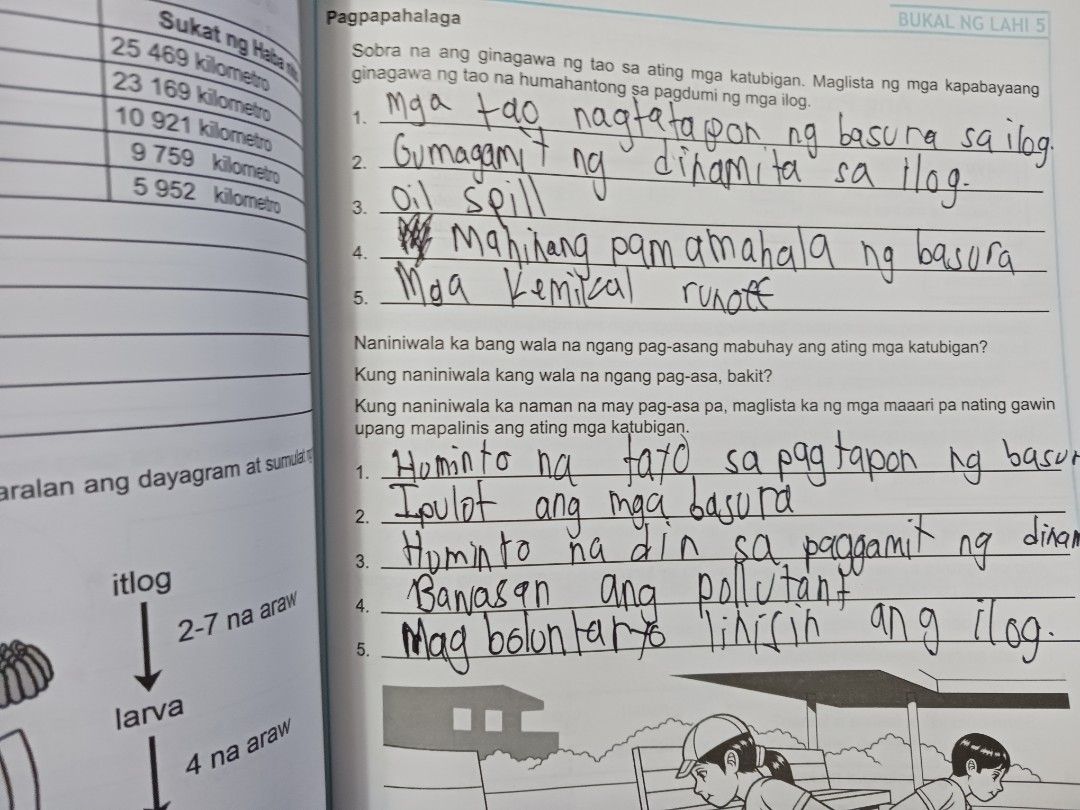 Sukat ng Haba
25 469 kilometro
23 169 kilometro
10 921 kilometro
9 759 kilometro
5 952 kilometro
aralan ang dayagram at sumulat
itlog
2-7 na araw
larva
4 na araw
BUKAL NG LAHI 5
Pagpapahalaga
Sobra na ang ginagawa ng tao sa ating mga katubigan. Maglista ng mga kapabayaang
ginagawa ng tao na humahantong sa pagdumi ng mga ilog.
1. Mga tao nagtatapon ng basura sa ilog.
2. Gumagamit ng dinamita sa ilog.
3. Oil spill
4. Mahinang pamamahala ng basura
5. Mga kemikal runoff
Naniniwala ka bang wala na ngang pag-asang mabuhay ang ating mga katubigan?
Kung naniniwala kang wala na ngang pag-asa, bakit?
Kung naniniwala ka naman na may pag-asa pa, maglista ka ng mga maaari pa nating gawin
upang mapalinis ang ating mga katubigan.
1. Huminto na tayo sa pagtapon ng basur
2. Ipulot ang mga basura
3. Huminto na din sa paggamit ng dinam
4. Bawasan ang pollutant
5. Mag boluntaryo linisin ang ilog.